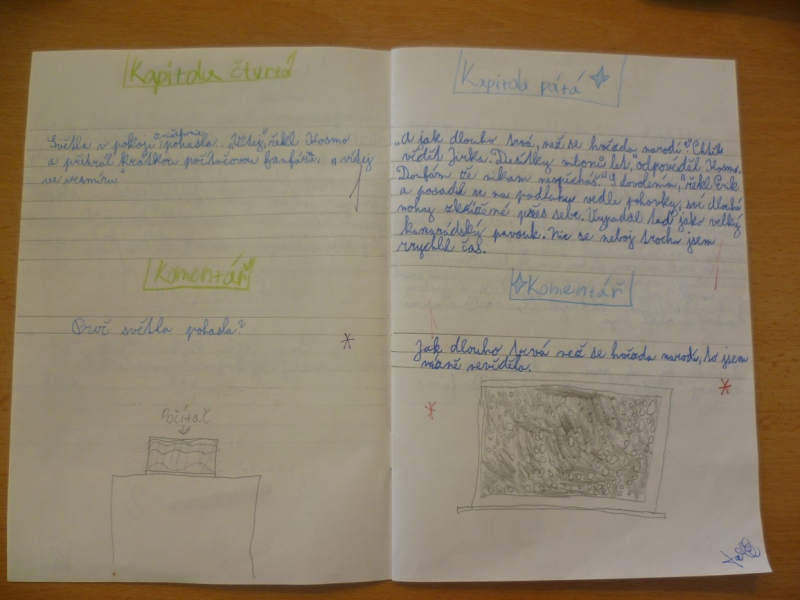 Kapitola čtvrtá
Světla v pokoji pohasla. „Vítej," řekl Kosmo
a přehrál krátkou počítačovou fanfáru. „vítej
ve vesmíru."
Komentář
Proč světla pohasla?
Počítač
Kapitola pátá
„A jak dlouho trvá, než se hvězda narodí?" Chtěl
vědět Jirka. Desítky milionů let," odpověděl Kosmo.
Doufám že nikam nespěcháš." S dovolením," řekl Erik
a posadil se na podlahu vedle pohovky, své dlouhé
nohy zkřížené přes sebe. Vypadal teď jako velký
kamarádský pavouk. Nic se neboj trochu jsem
zrychlil čas.
Komentář
Jak dlouho trvá než se hvězda narodí, to jsem
vážně nevěděla.